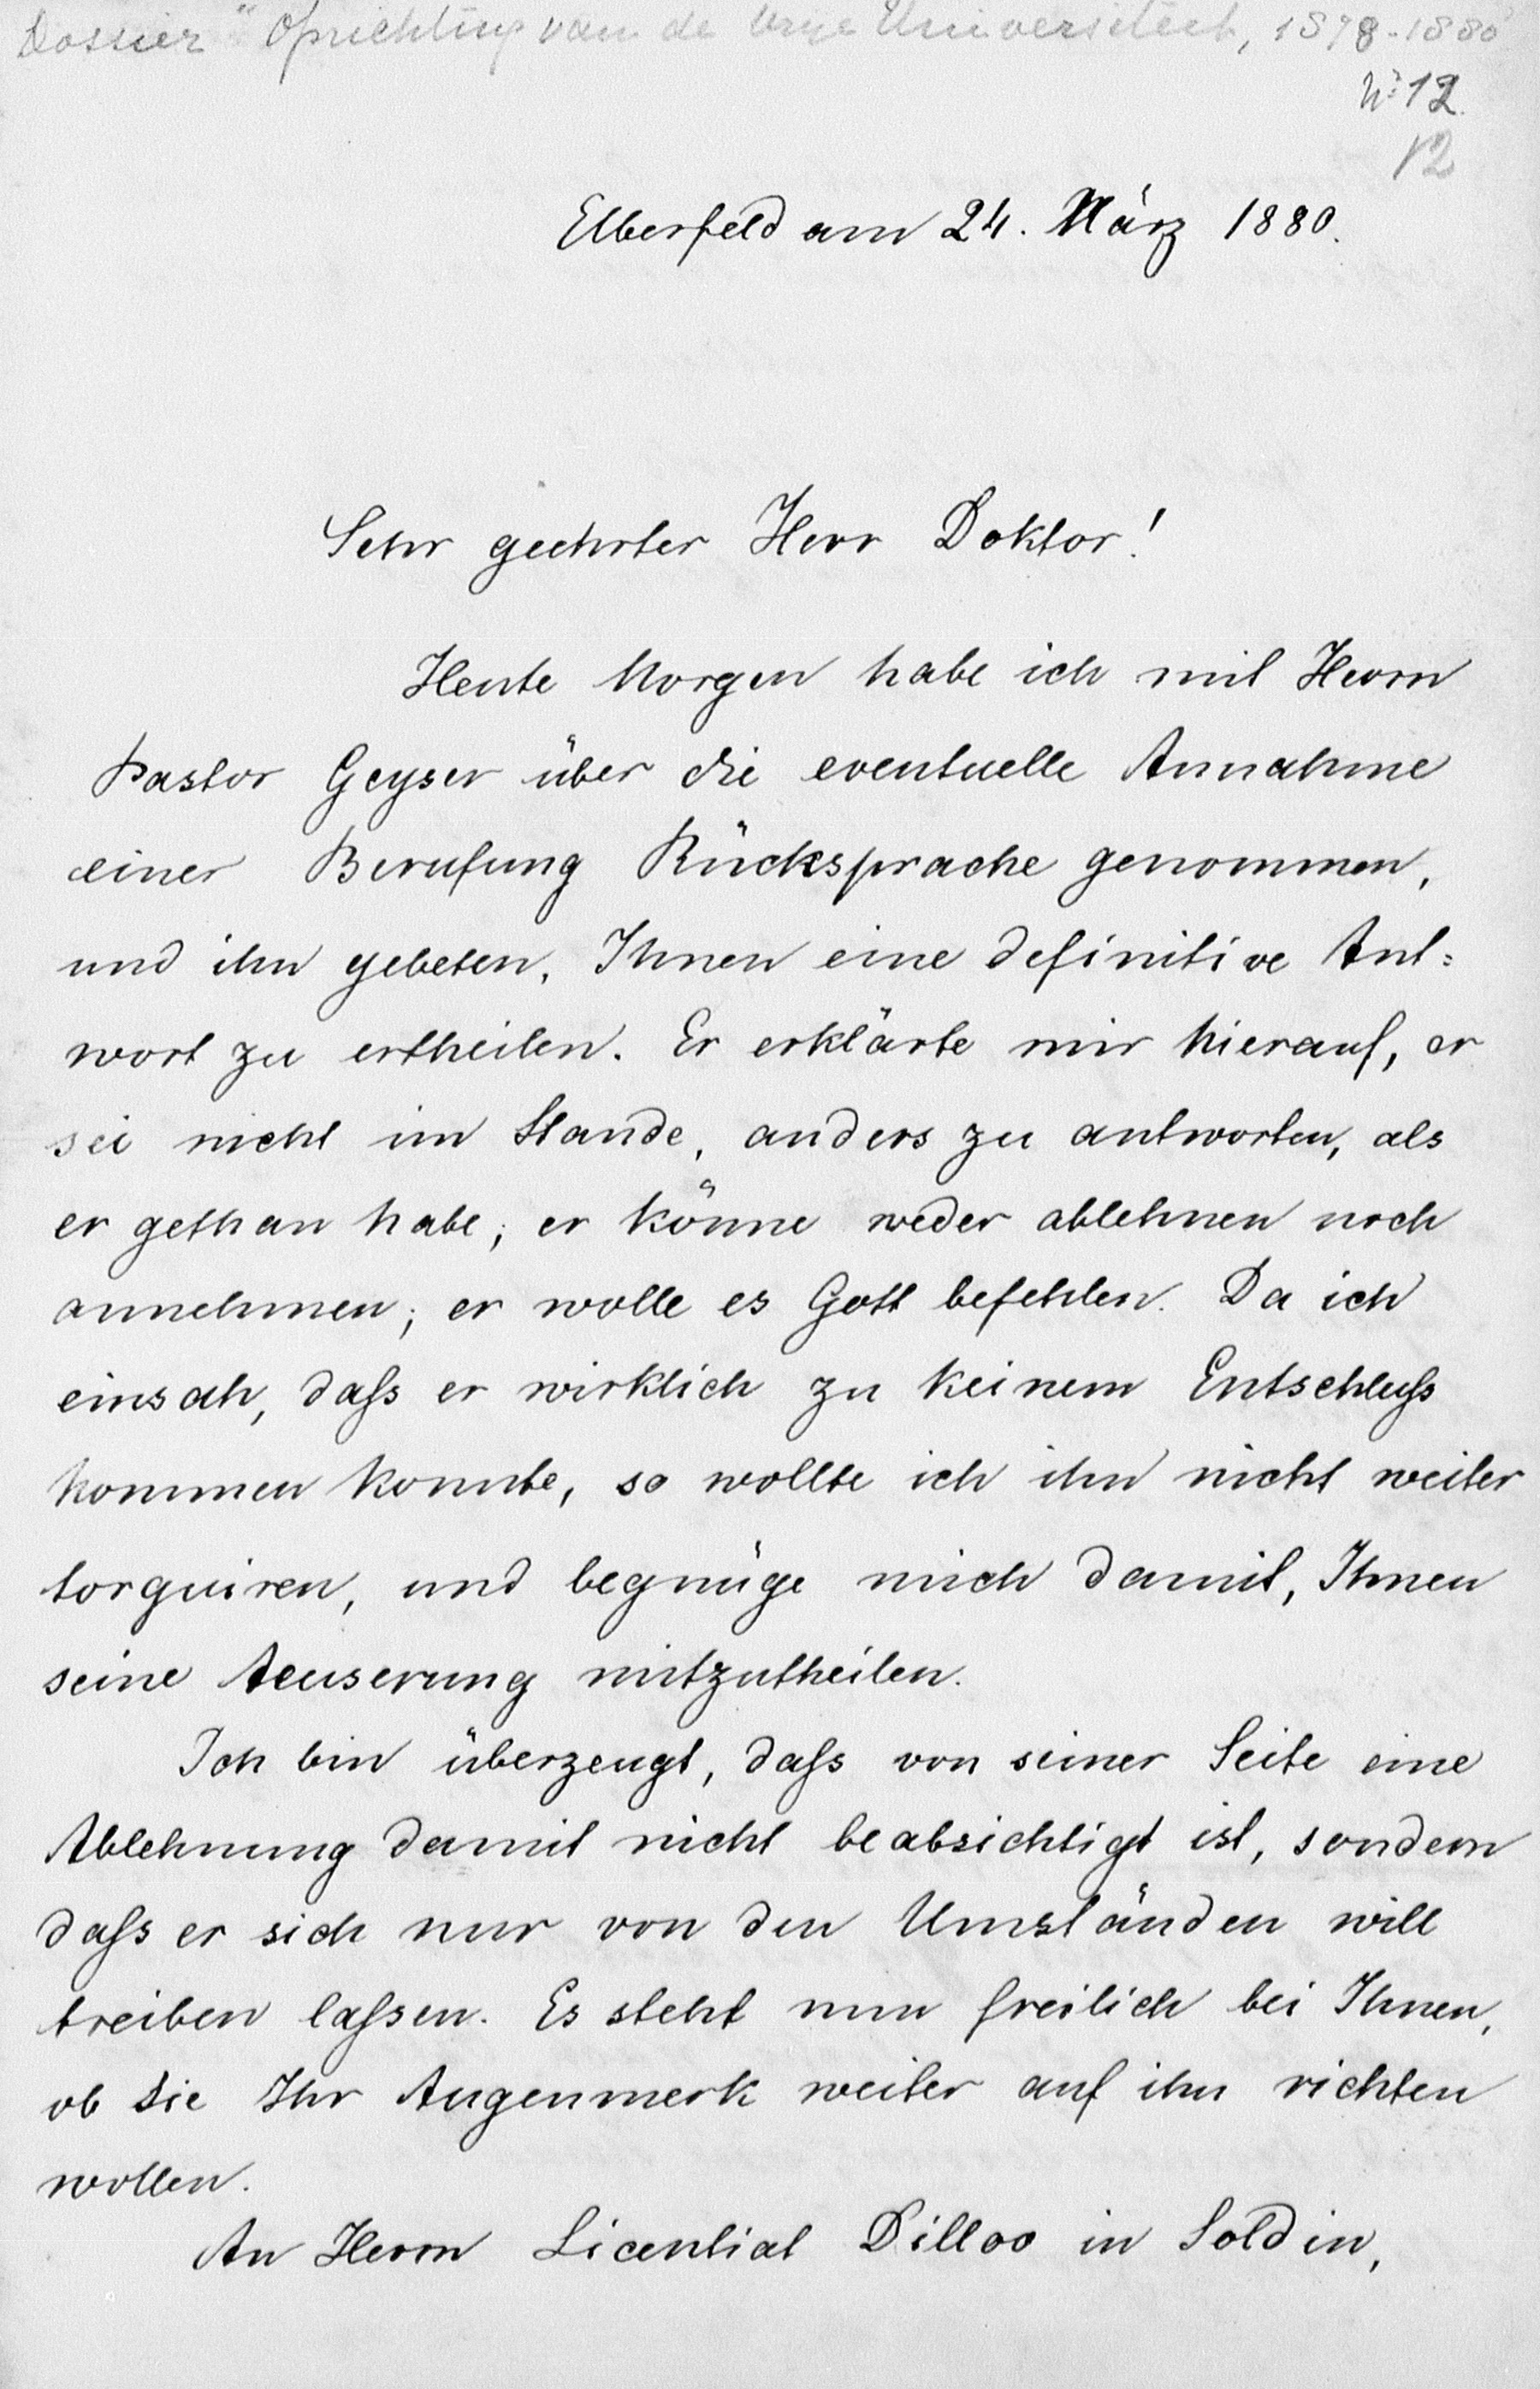 Dossier "Oprichting van de Vrye Universiteit, 1878-1880"
No 12.
12
Elberfeld am 24. März 1880.
Sehr geehrter Herr Doktor!
Heute Morgen habe ich mit Herrn
Pastor Geyser über die eventuelle Annahme
einer Berufung Rücksprache genommen,
und ihn gebeten, Ihnen eine definitive Ant=
wort zu ertheilen. Er erklärte mir hierauf, er
sei nicht im Stande, anders zu antworten, als
er gethan habe; er könne weder ablehnen noch
annehmen; er wolle es Gott befehlen. Da ich
einsah, daſs er wirklich zu keinem Entschluſs
kommen konnte, so wollte ich ihn nicht weiter
torquiren, und begnüge mich damit, Ihnen
seine Aeuserung mitzutheilen.
Ich bin überzeugt, daſs von seiner Seite eine
Ablehnung damit nicht beabsichtigt ist, sondern
daſs er sich nur von den Umständen will
treiben laſsen. Es steht nun freilich bei Ihnen,
ob Sie Ihr Augenmerk weiter auf ihn richten
wollen.
An Herrn Licentiat Dilloo in Soldin,